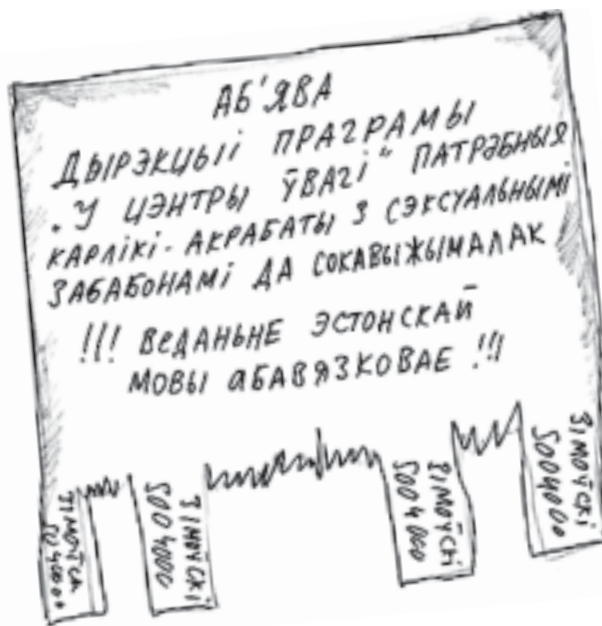 АБ'ЯВА
ДЫРЭКЦЫІ ПРАГРАМЫ
„У ЦЭНТРЫ ЎВАГІ“ ПАТРЭБНЫЯ
КАРЛІКІ-АКРАБАТЫ З СЭКСУАЛЬНЫМІ
ЗАБАБОНАМІ ДА СОКАВЫЖЫМАЛАК
!!! ВЕДАНЬНЕ ЭСТОНСКАЙ
МОВЫ АБАВЯЗКОВАЕ !!!
ЗІМОЎСКІ
5004000
ЗІМОЎСКІ
5004000
ЗІМОЎСКІ
5004000